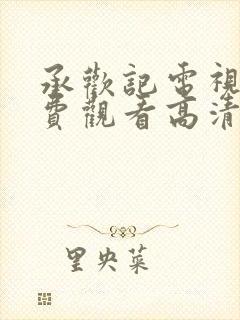 承歡記電視
費觀看高清
里央菜